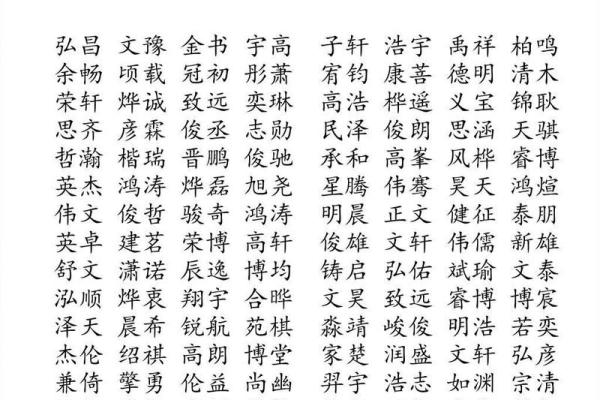 弘昌 文豫 金书 宇高 子轩 浩宇 禹祥 柏鸣
余畅 顷载 冠初 彤萧 宥钧 康菩 德明 清木
荣轩 烨诚 致远 奕琳 高浩 桦遥 义宝 锦耿
思齐 彦霖 俊丞 志勋 民泽 俊朗 思涵 天骐
哲瀚 楷瑞 晋鹏 俊驰 承和 高峯 风桦 睿博
英杰 鸿涛 烨磊 旭尧 星腾 伟骞 昊天 鸿煊
伟文 俊哲 骏奇 鸿涛 明晨 正文 健征 泰朋
英卓 建茗 荣博 高轩 俊雄 文轩 伟儒 新雄
舒文 潇诺 辰逸 博均 铸启 弘佑 斌瑜 文泰
泓顺 烨衷 翔宇 合晔 文昊 致远 睿博 博宸
泽天 晨希 锐航 苑棋 淼靖 峻俊 明浩 若奕
杰伦 绍祺 高朗 博堂 家楚 润盛 文轩 弘彦
兼倚 擎勇 伦益 尚幽 羿宇 浩志 如渊 宗清